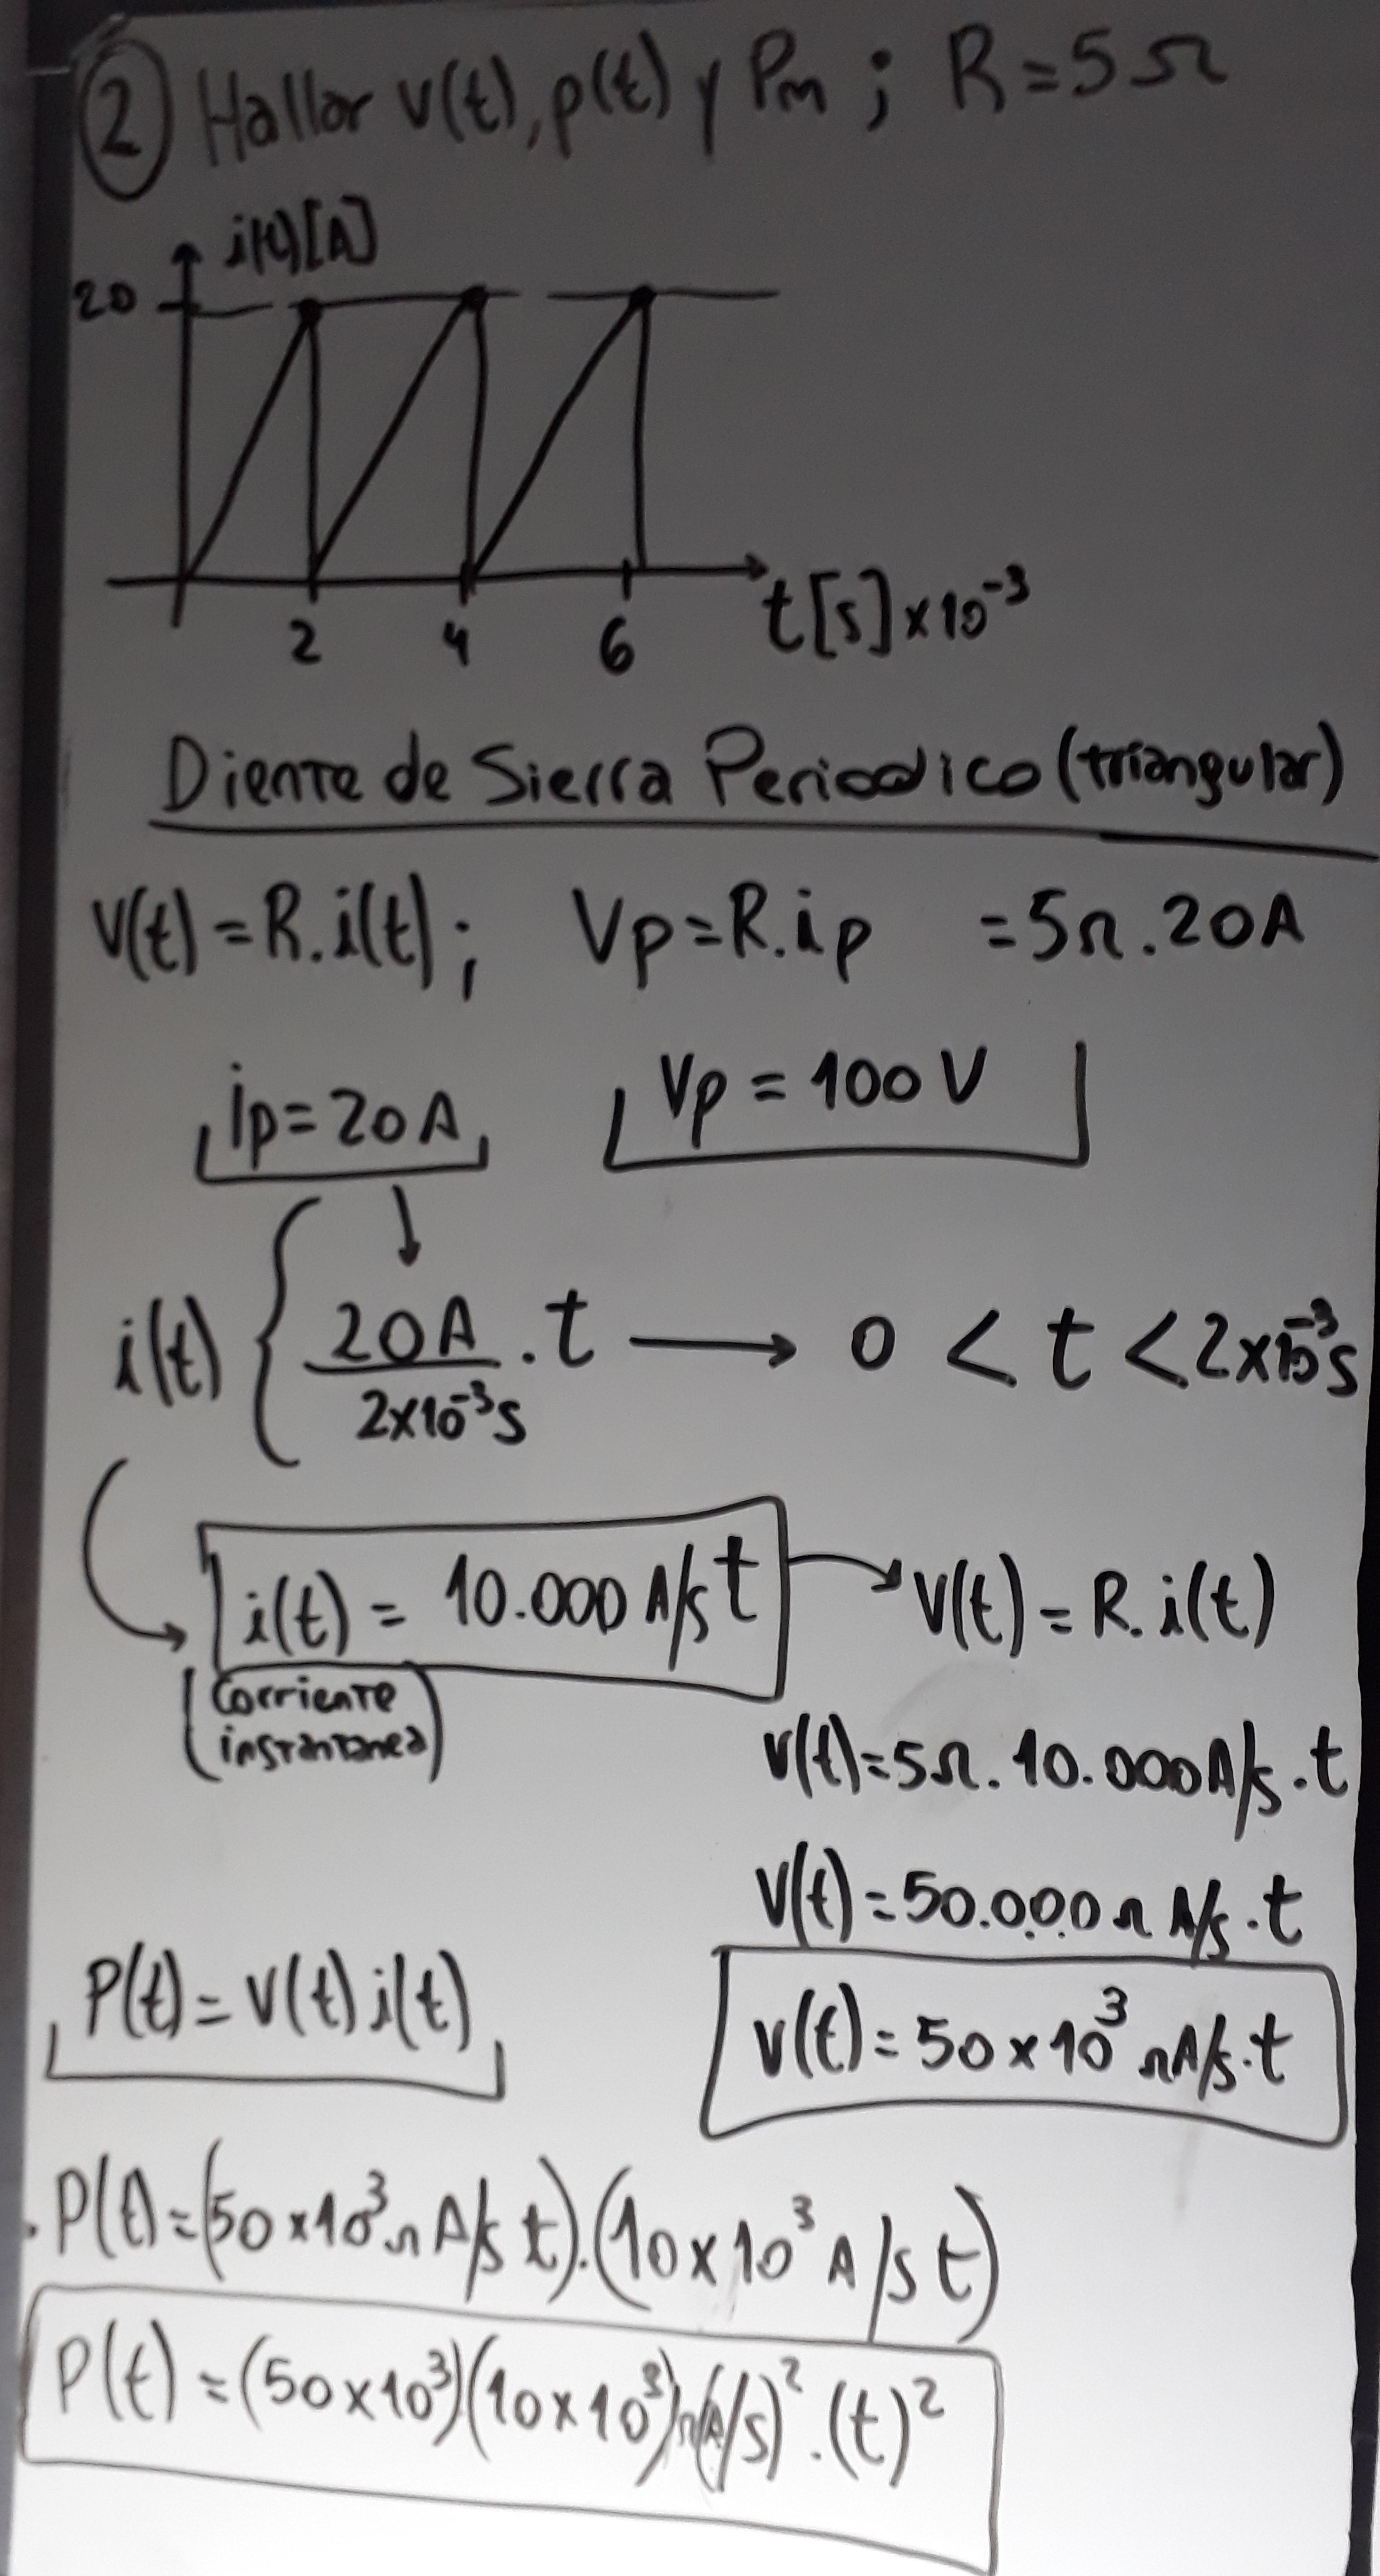 ② Hallar v(t), p(t) y Pm ; R=5Ω
i(t)[A]
20
2 4 6 t[s]x10⁻³
Diente de Sierra Periodico (triangular)
V(t)=R.i(t); Vp=R.ip =5Ω.20A
ip=20A Vp=100V
i(t) { 20A/2x10⁻³s .t → 0 < t < 2x10⁻³s
i(t) = 10.000 A/s t → V(t)=R.i(t)
(Corriente
instantanea)
V(t)=5Ω.10.000A/s.t
V(t)=50.000Ω A/s.t
P(t)=V(t)i(t)
V(t)=50x10³ΩA/s.t
.P(t)=(50x10³Ω A/s t).(10x10³ A/s t)
P(t)=(50x10³)(10x10³)Ω(A/s)².(t)²